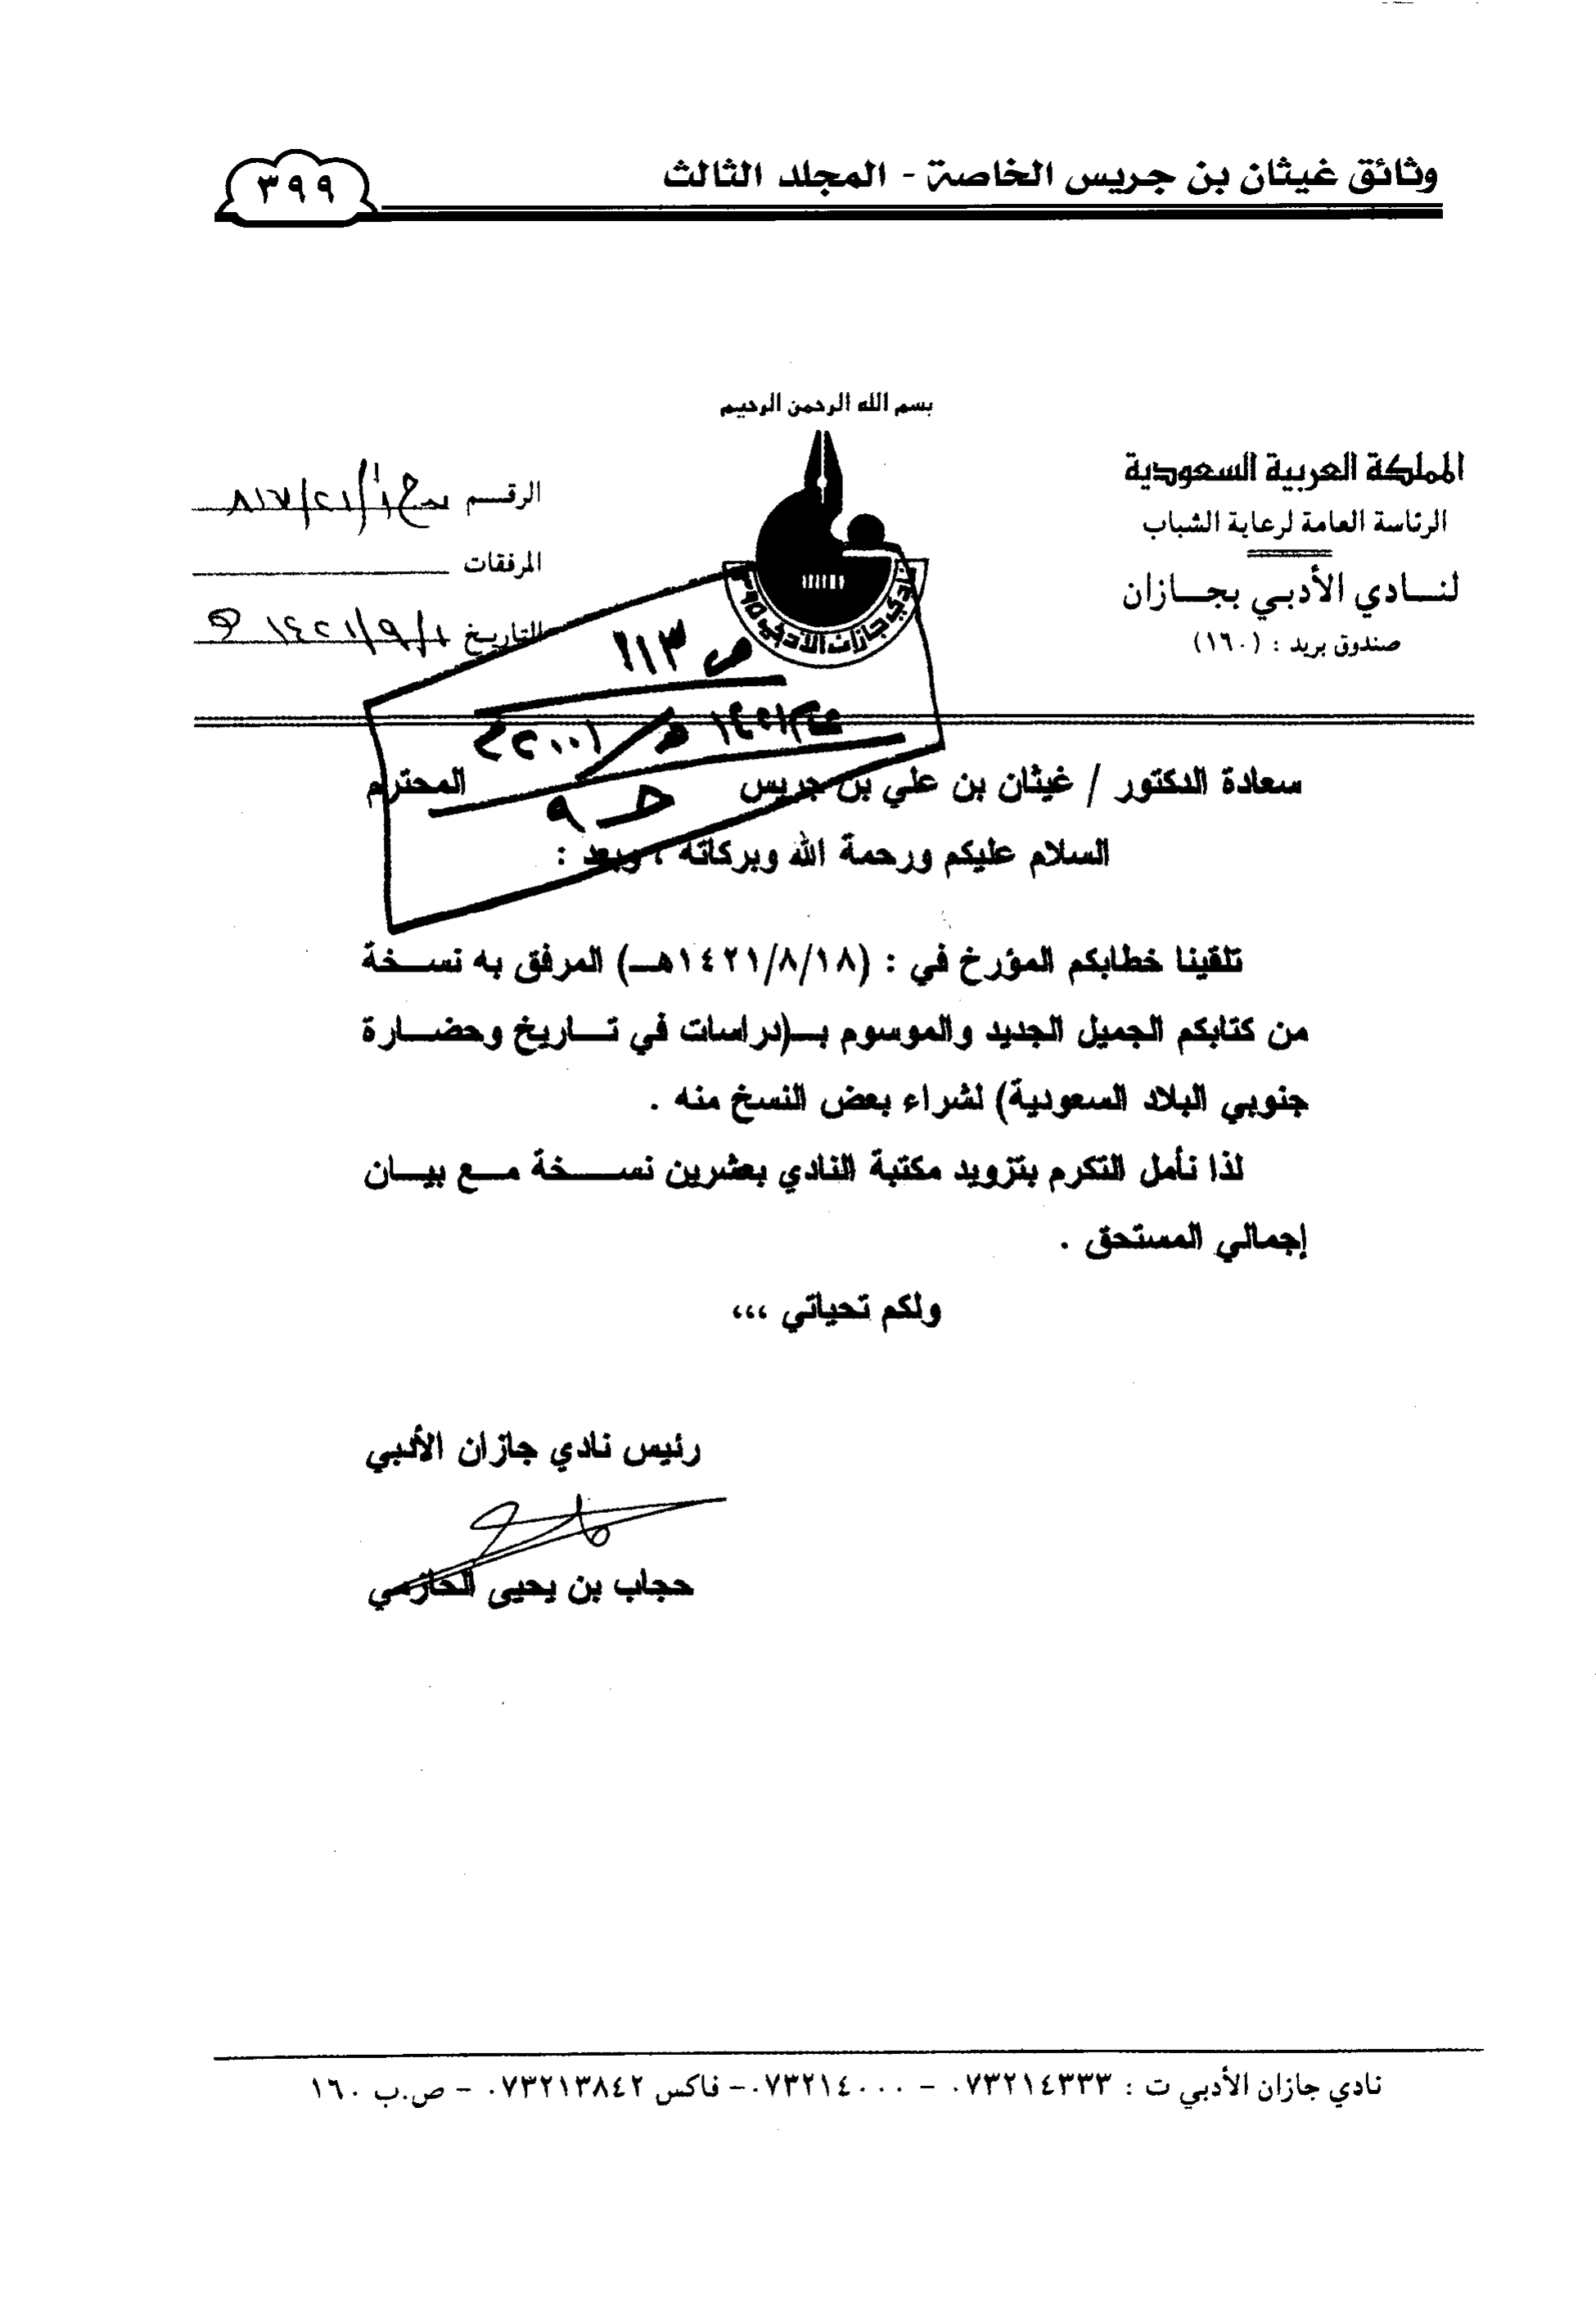 وثائق غيثان بن جريس الخاصة - المجلد الثالث
٣٩٩
بسم الله الرحمن الرحيم
المملكة العربية السعودية
الرئاسة العامة لرعاية الشباب
لنـــادي الأدبـي بجـــازان
صندوق بريد : (١٦٠)
الرقـــم
المرفقات
التاريـخ ١٤٢١/٩/١
نادي جازان الأدبي
ص ١١٣
٩
سعادة الدكتور / غيثان بن علي بن جريس المحترم
السلام عليكم ورحمة الله وبركاته ، وبعد :
تلقينا خطابكم المؤرخ في : (١٤٢١/٨/١٨هـــ) المرفق به نســـخة
من كتابكم الجميل الجديد والموسوم بــ(دراسات في تـــاريخ وحضـــارة
جنوبي البلاد السعودية) لشراء بعض النسخ منه .
لذا نأمل التكرم بتزويد مكتبة النادي بعشرين نســــخة مـــع بيـــان
إجمالي المستحق .
ولكم تحياتي ،،،
رئيس نادي جازان الأدبي
حجاب بن يحيى الحازمي
نادي جازان الأدبي ت : ٠٧٣٢١٤٣٣٣ - ٠٧٣٢١٤٠٠٠- فاكس ٠٧٣٢١٣٨٤٢ - ص.ب ١٦٠